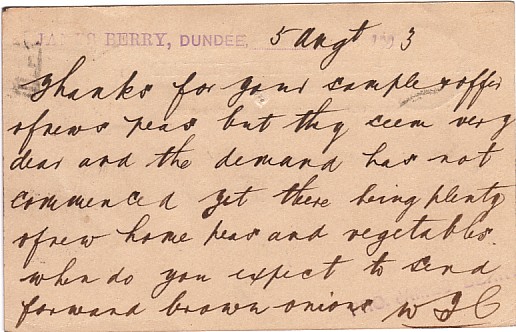 JAMES BERRY, DUNDEE, 5 Augt 1903
Thanks for your sample & offer
of news peas but thy seem very
dear and the demand has not
commenced yet there being plenty
of new home peas and vegetables.
when do you expect to send
forward brown onions